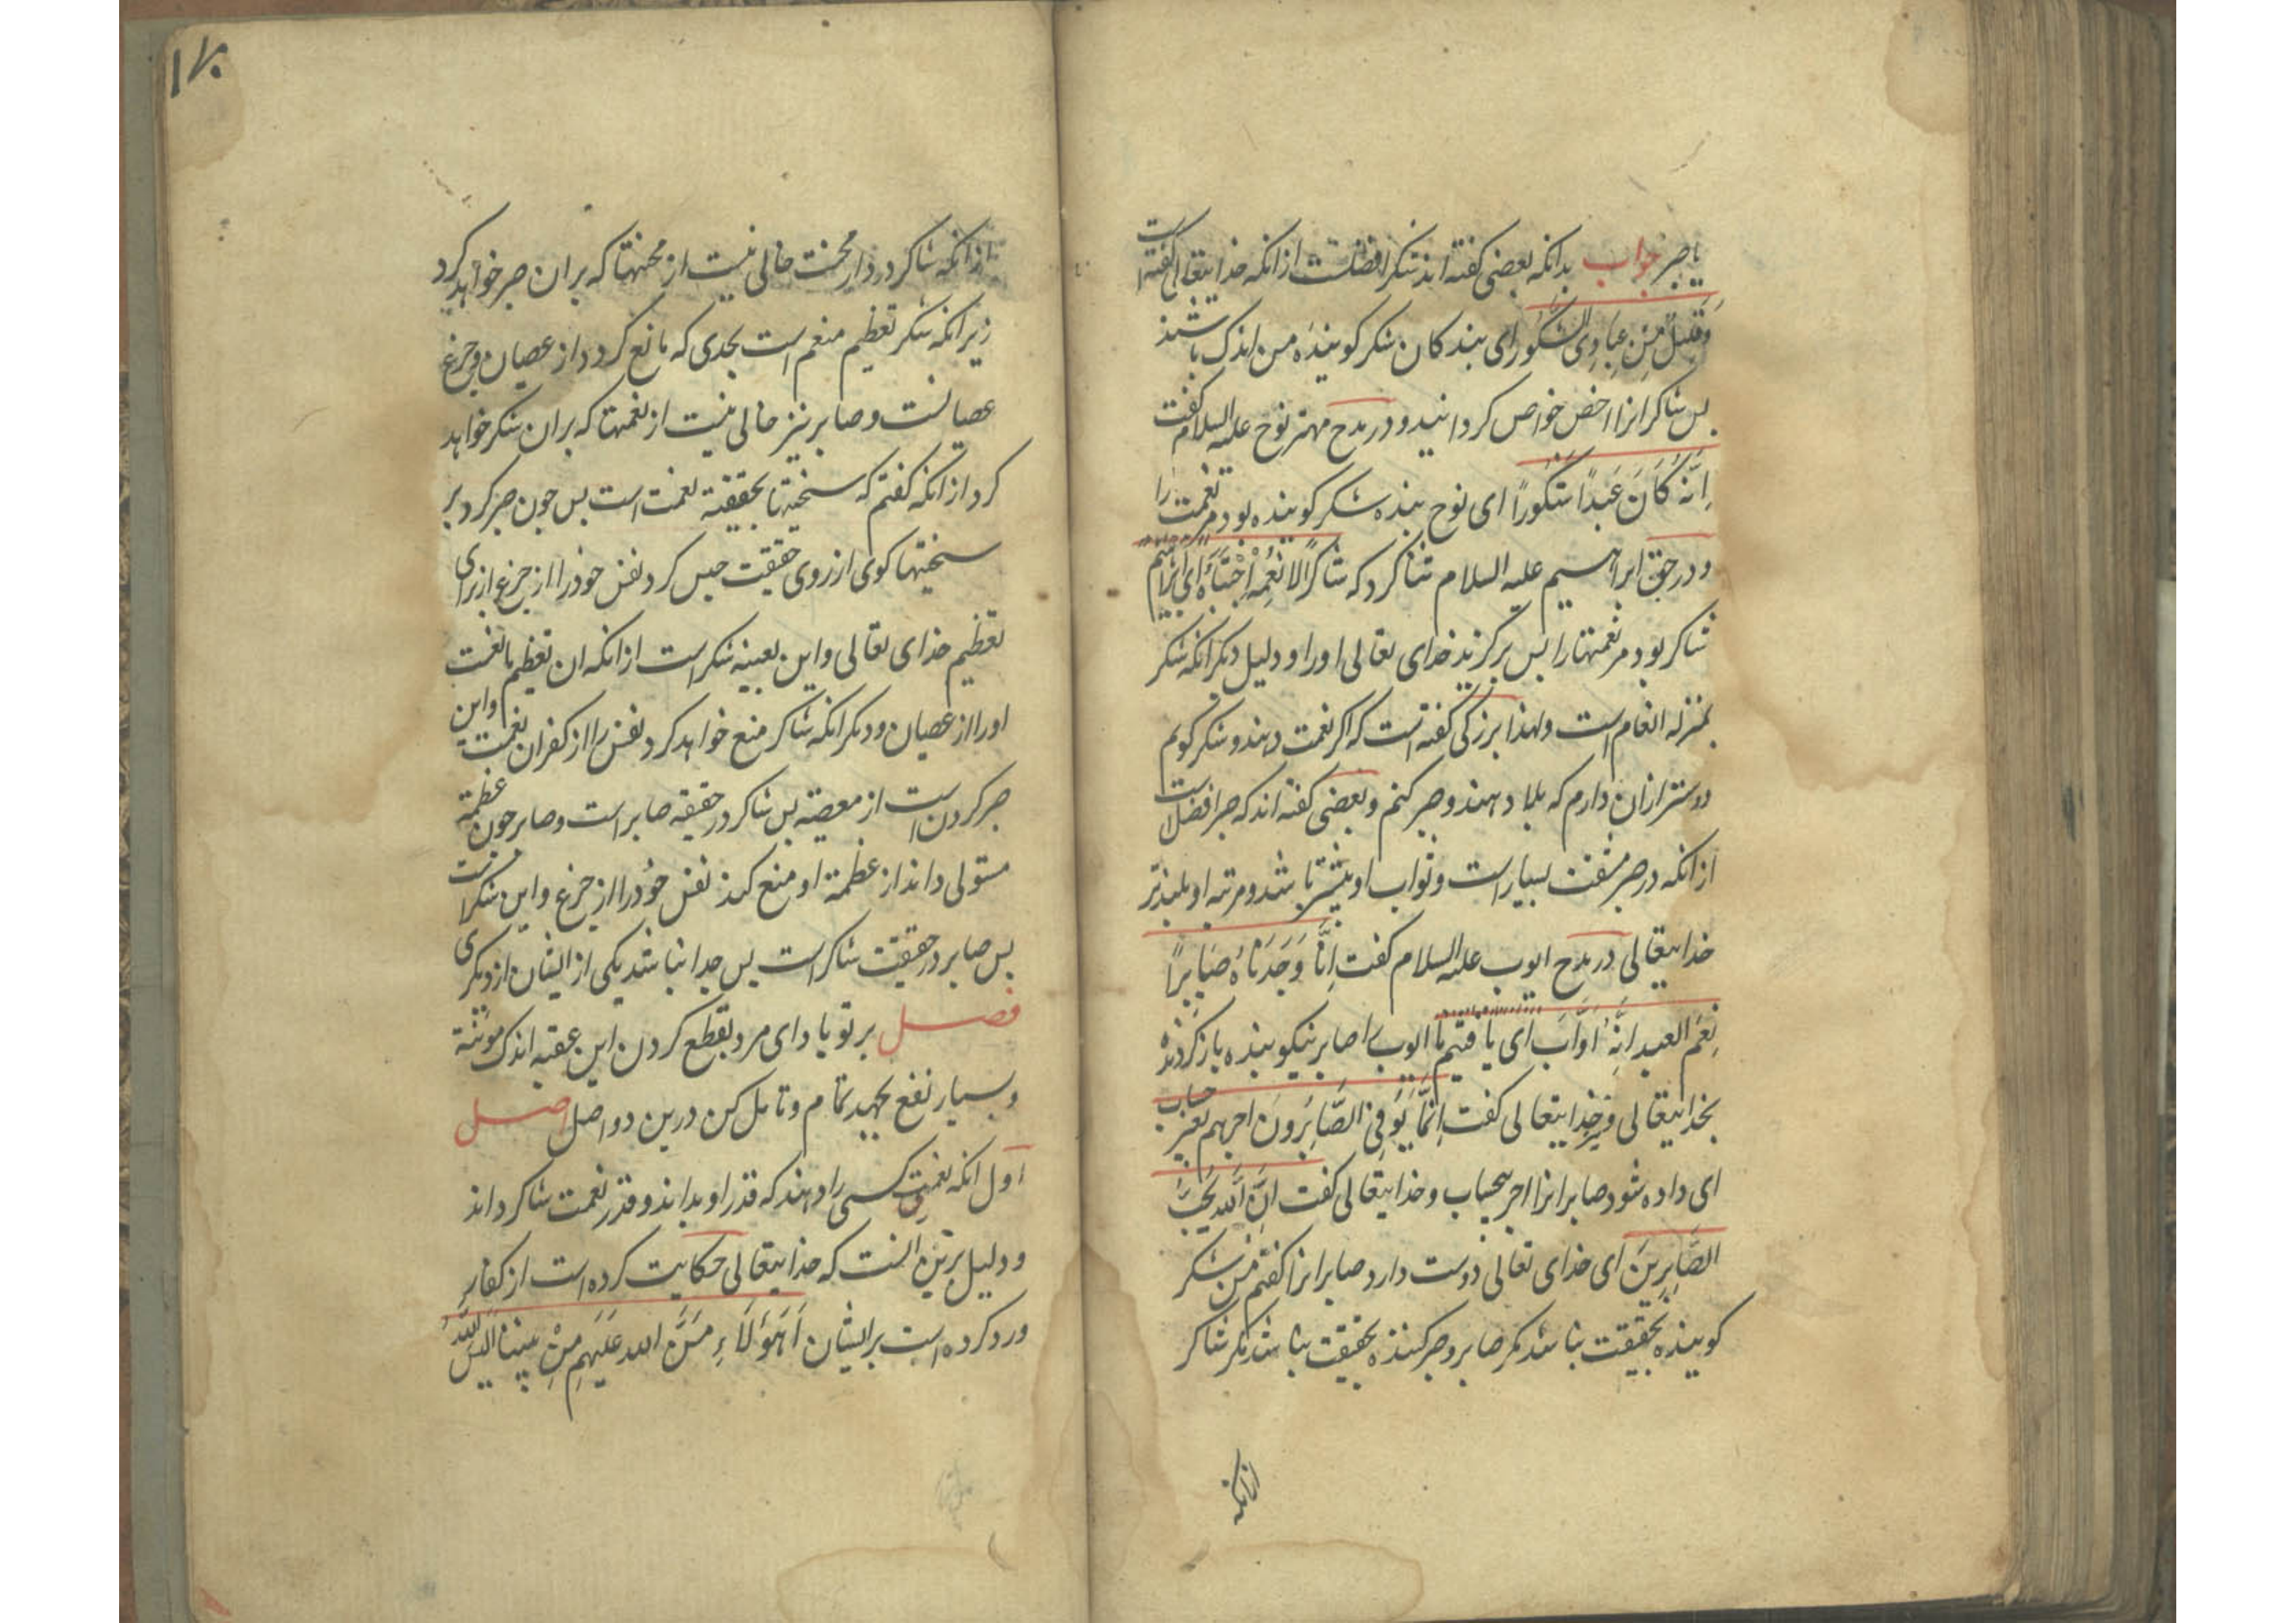 یا صبر جواب بدانکه بعضی کفته اند شکر افضلست از انکه خدایتعالی کفته است
وَقَلیلٌ مِنْ عِبَادِیَ الشَّکُور ای بندکان شکر کوینده من اندک باشند
بس شاکرانرا اخص خواص کردانید و در مدح مهتر نوح علیه السلام کفت
اِنَّهُ کَانَ عَبدًا شَکُورًا ای نوح بنده شکر کوینده بود مر نعمت را
و در حق ابراهیم علیه السلام ثنا کرد که شاکرًا لانعُمِه اِجْتَبَاهُ ای ابراهیم
شاکر بود مر نعمتهارا بس برکزید خدای تعالی اورا و دلیل دیکر انکه شکر
بمنزله انعام است ولهذا بزرکی کفته است که اکر نعمت دهند و شکر کویم
دوستر ازان دارم که بلا دهند و صبر کنم و بعضی کفته اند که صبر افضل است
از انکه در صبر مشقت بسیار است و ثواب او بیشتر باشد و مرتبه او بلندتر
خدایتعالی در مدح ایوب علیه السلام کفت اِنَّا وَجَدنَاهُ صَابِرًا
نِعْمَ العبد اِنَّهُ اَوَّاب ای یافتیم ما ایوب را صابر نیکو بنده بازکردنده
بخدایتعالی و خدایتعالی کفت اِنَّمَا یُوَفَّی الصَّابِرُونَ اجرهم بغیر حساب
ای داده شود صابرانرا اجر بیحساب و خدایتعالی کفت اِنَّ اللّه یُحِبُّ
الصَّابِرِینَ ای خدای تعالی دوست دارد صابرانرا کفتم من شکر
کوینده بحقیقت نباشد مکر صابر و صبر کننده بحقیقت نباشد مکر شاکر
ازانکه
۱۷۰
ازانکه شاکر در دار محنت خالی نیست از محنتها که بران صبر خواهد کرد
زیرانکه شکر تعظیم منعم است بحدی که مانع کردد از عصیان و جزع
عصیانست و صابر نیز خالی نیست از نعمتها که بران شکر خواهد
کرد از انکه کفتم که سختیها بحقیقة نعمت است بس چون صبر کرد بر
سختیها کوی از روی حقیقت حبس کرد نفس خودرا از جزع از برای
تعظیم خدای تعالی و این بعینه شکر است از انکه ان تعظیم مانعست
اورا از عصیان و دیکر انکه شاکر منع خواهد کرد نفس را از کفران نعمت و این
صبر کردن است از معصیة بس شاکر در حقیقة صابر است و صابر چون عظمة
مستولی داند از عظمة او منع کند نفس خودرا از جزع و این شکر است
بس صابر در حقیقت شاکر است بس جدا نباشد یکی از ایشان از دیکری
فصل بر تو باد ای مرد بقطع کردن این عقبه اندک مؤنة
و بسیار نفع بجهد تمام و تامل کن درین دو اصل اصل
اول انکه نعمت کسی را دهند که قدر او بداند و قدر نعمت شاکر داند
و دلیل برین انست که خدایتعالی حکایت کرده است از کفار
و رد کرده است بر ایشان اَهَؤُلَاءِ مَنَّ الله عَلَیهِمْ مِنْ بَیْنِنَا اَلَیْسَ اللّهُ